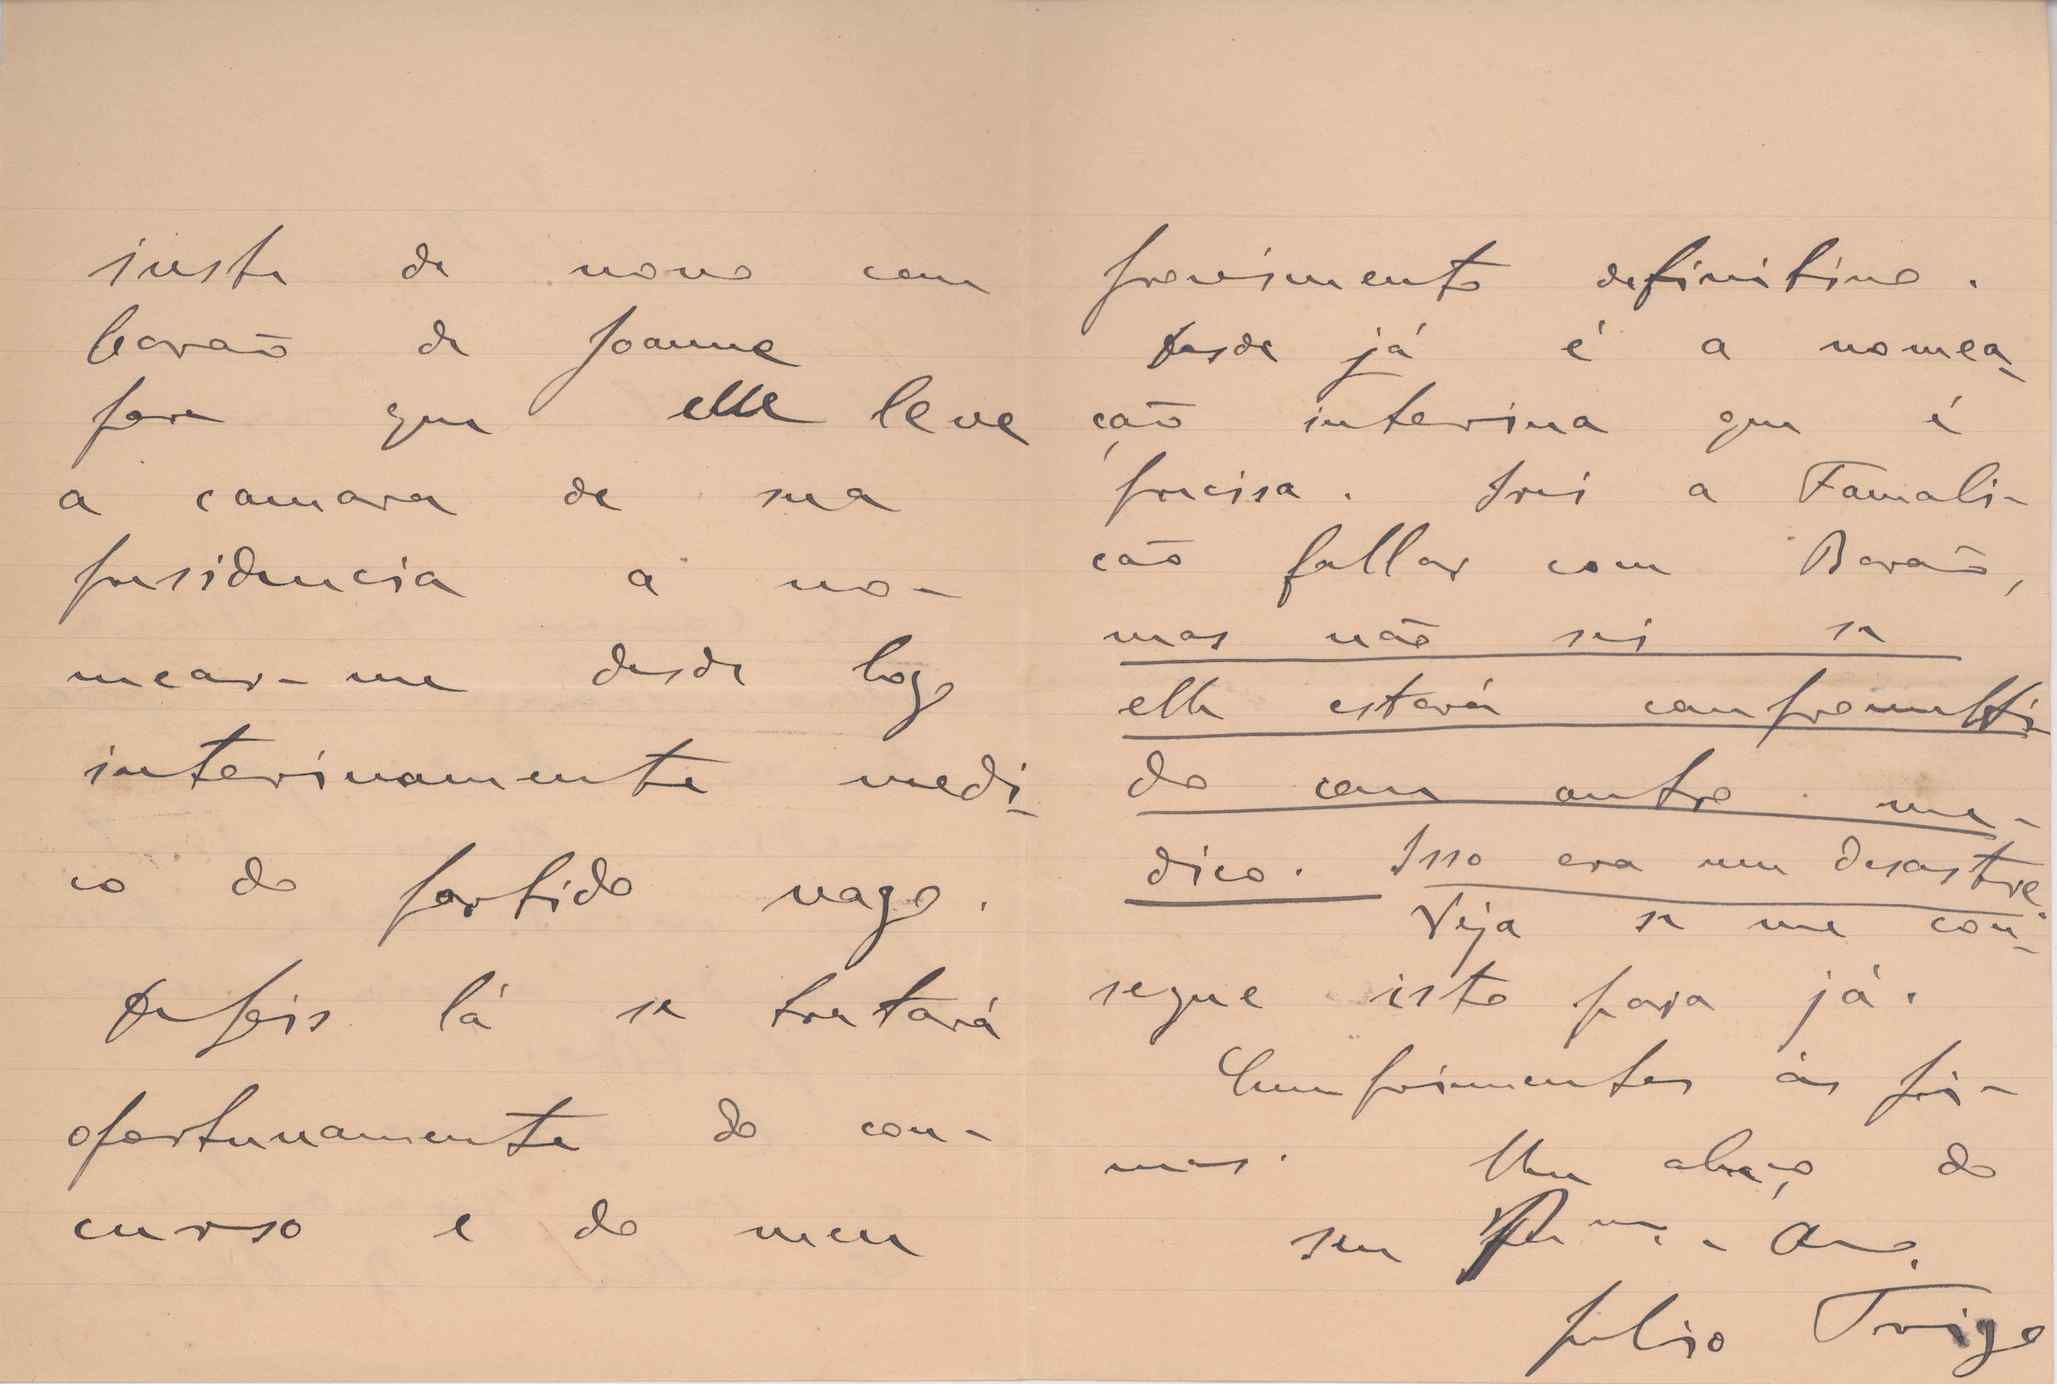 insta de novo com
barão de Joanne
para que elle leve
a camara de sua
presidencia a no-
mear-me desde logo
interinamente medi-
co do partido vago.
Depois lá se tratará
opportunamente do con-
curso e do meu
provimento definitivo.
Desde já é a nomea-
ção interina que é
precisa. Irei a Famali-
cão fallar com Barão,
mas não sei se
elle estará compromettido
do com outro me-
dico. Isso era um desastre.
Veja se me con-
segue isto para já.
Cumprimentos ás pri-
mas. Um abraço do
seu
Julio Trigo